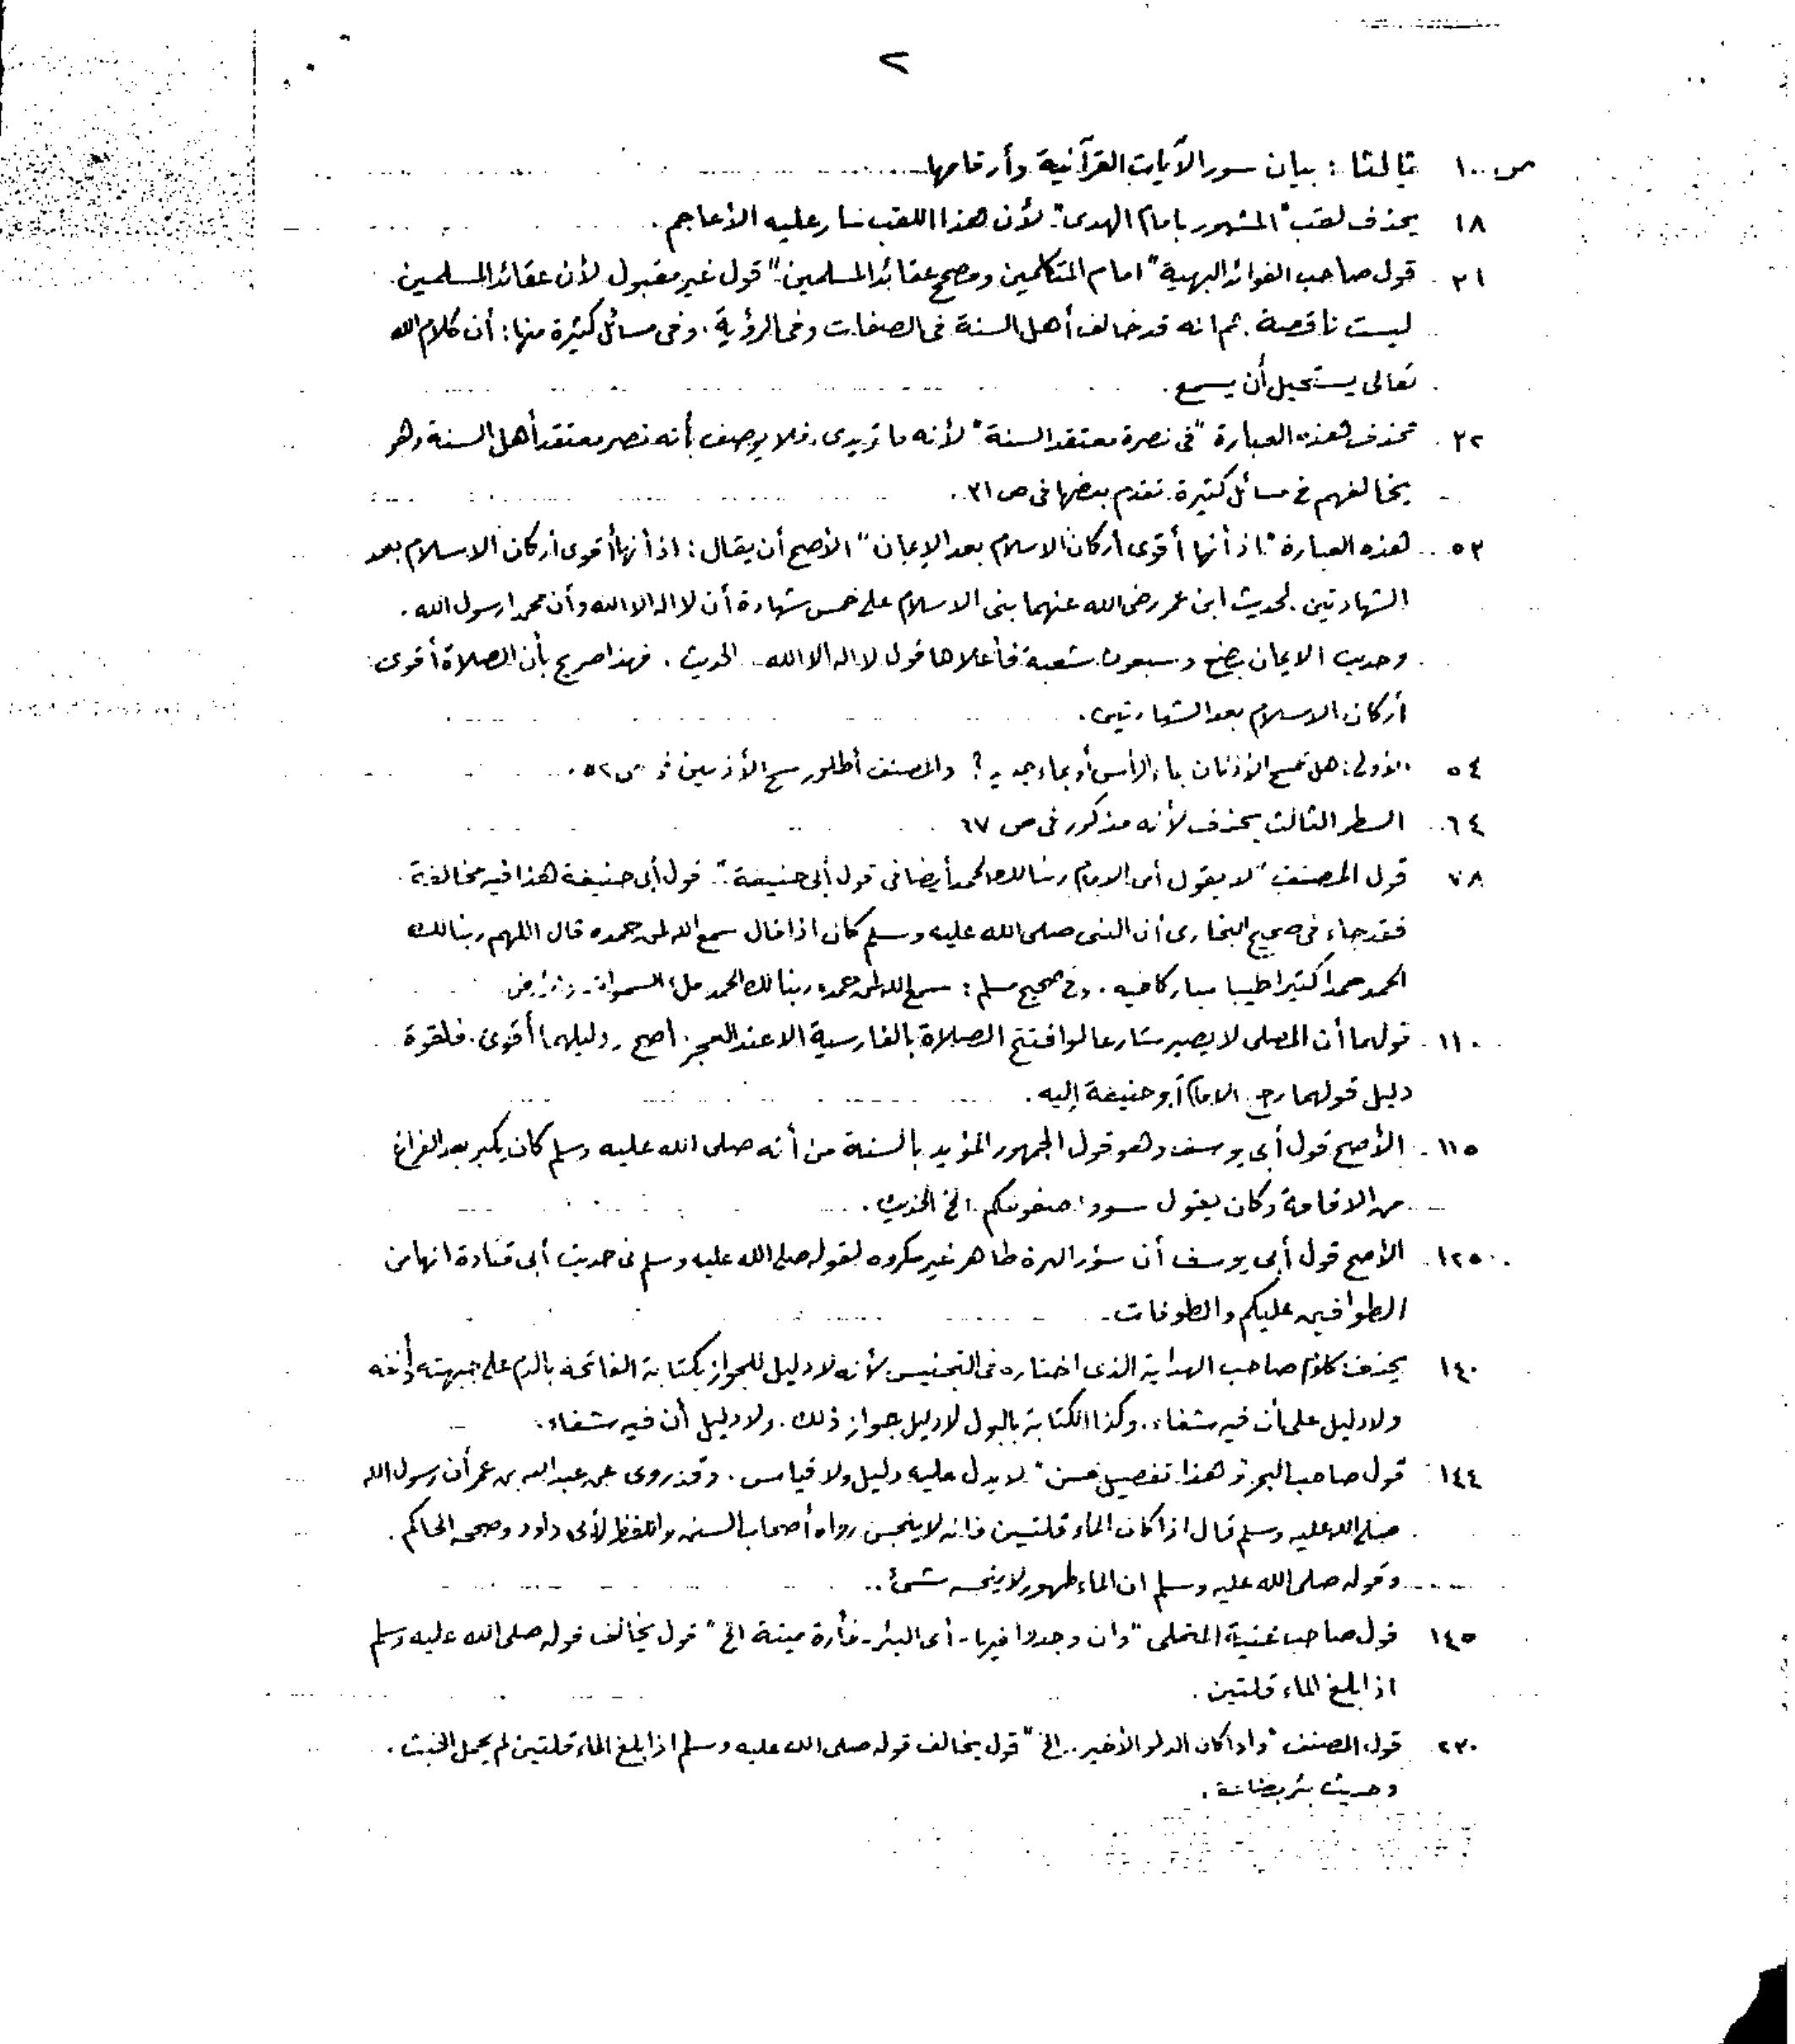 ٢
ص ١٠٠ ثالثا : بيان سور الآيات القرآنية وأرقامها
١٨ يحذف لقب "المشهور بإمام الهدى" لأن هذا اللقب سار عليه الأعاجم .
٢١ قول صاحب الفوائد البهية "امام المتكلمين ومصحح عقائد المسلمين" قول غير مقبول لأن عقائد المسلمين
ليست ناقصة . ثم انه قد خالف أهل السنة فى الصفات وفى الرؤية . وفى مسائل كثيرة منها : أن كلام الله
تعالى يستحيل أن يسمع .
٢٢ تحذف هذه العبارة "فى نصرة معتقد السنة" لأنه ماتريدى . فلا يوصف بأنه نصر معتقد أهل السنة وهو
يخالفهم في مسائل كثيرة . تقدم بعضها فى ص ٢١ .
٥٣ هذه العبارة "اذ أنها أقوى أركان الاسلام بعد الإيمان" الأصح أن يقال : اذ أنها أقوى أركان الاسلام بعد
الشهادتين . لحديث ابن عمر رضى الله عنهما بنى الاسلام على خمس شهادة أن لا اله الا الله وأن محمدا رسول الله .
وحديث الايمان بضع وسبعون شعبة فأعلاها قول لا اله الا الله - الحديث . فهذا صريح بأن الصلاة أقوى
أركان الاسلام بعد الشهادتين .
٥٤ الأولى : هل تمسح الأذنان بماء الرأس أو بماء جديد ؟ والمصنف أطلق مسح الأذنين فى ص ٥٢ .
٦٤ السطر الثالث يحذف لأنه مذكور فى ص ٦٧
٧٨ قول المصنف "لا يقول أى الامام ربنا لك الحمد أيضا فى قول أبى حنيفة" . قول أبى حنيفة هذا فيه مخالفة .
فقد جاء فى صحيح البخارى أن النبى صلى الله عليه وسلم كان اذا قال سمع الله لمن حمده قال اللهم ربنا لك
الحمد حمدا كثيرا طيبا مباركا فيه . وفى صحيح مسلم : سمع الله لمن حمده ربنا لك الحمد ملء السموات والأرض
١١٠ قولهما أن المصلى لا يصير شارعا لو افتتح الصلاة بالفارسية الا عند العجز . أصح . ودليلهما أقوى . فلقوة
دليل قولهما رجع الامام أبو حنيفة إليه .
١١٥ الأصح قول أبى يوسف وهو قول الجمهور المؤيد بالسنة من أنه صلى الله عليه وسلم كان يكبر بعد الفراغ
من الاقامة وكان يقول سووا صفوفكم . الخ الحديث .
١٢٥ الأصح قول أبى يوسف أن سؤر الهرة طاهر غير مكروه لقوله صلى الله عليه وسلم فى حديث أبى قتادة انها من
الطوافين عليكم والطوفات .
١٤٠ يحذف كلام صاحب الهداية الذى اختاره فى التجنيس لأنه لا دليل للجواز بكتابة الفاتحة بالدم على جبهته وأنفه
ولا دليل على أن فيه شفاء . وكذا الكتابة بالبول لا دليل جواز ذلك . ولا دليل أن فيه شفاء .
١٤٤ قول صاحب البحر "وهذا تفصيل حسن" لا يدل عليه دليل ولا قياس . وقد روى عن عبد الله بن عمر أن رسول الله
صلى الله عليه وسلم قال اذا كان الماء قلتين فانه لا ينجس رواه أصحاب السنن واللفظ لأبى داود وصححه الحاكم .
وقوله صلى الله عليه وسلم ان الماء طهور لا ينجسه شىء ..
١٤٥ قول صاحب غنية المتملى "وان وجدوا فيها - أى البئر - فأرة ميتة الخ" قول يخالف قوله صلى الله عليه وسلم
اذا بلغ الماء قلتين .
٢٣٠ قول المصنف "واذا كان الدلو الأخير .. الخ" قول يخالف قوله صلى الله عليه وسلم اذا بلغ الماء قلتين لم يحمل الخبث .
وحديث بئر بضاعة .